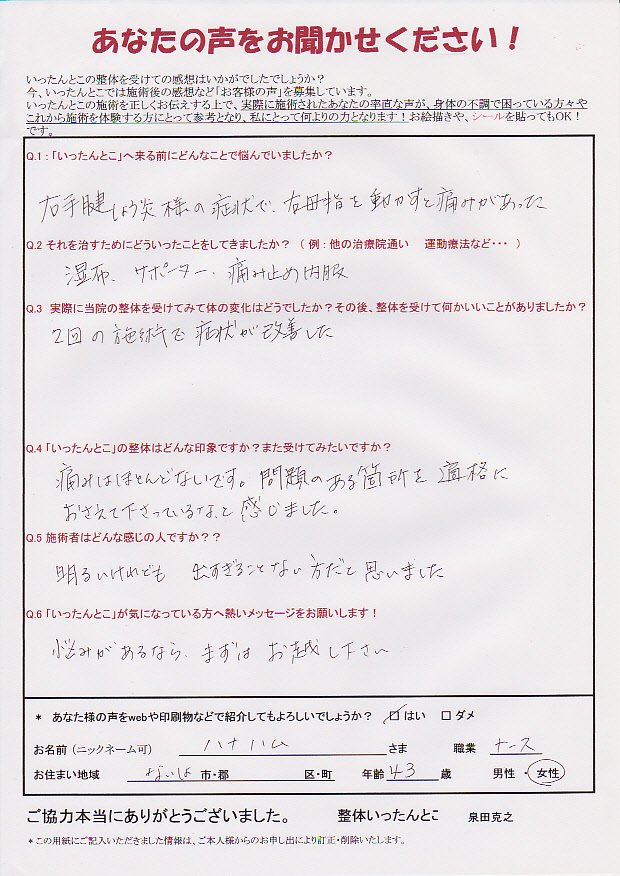 あなたの声をお聞かせください！
いったんとこの整体を受けての感想はいかがでしたでしょうか？
今、いったんとこでは施術後の感想など「お客様の声」を募集しています。
いったんとこの施術を正しくお伝えする上で、実際に施術されたあなたの率直な声が、身体の不調で困っている方々や
これから施術を体験する方にとって参考となり、私にとって何よりの力となります！お絵描きや、シールを貼ってもOK！
です。
Q.1：「いったんとこ」へ来る前にどんなことで悩んでいましたか？
右手腱しょう炎様の症状で、右母指を動かすと痛みがあった
Q.2 それを治すためにどういったことをしてきましたか？（ 例：他の治療院通い　運動療法など・・・ ）
湿布、サポーター、痛み止め内服
Q.3 実際に当院の整体を受けてみて体の変化はどうでしたか？その後、整体を受けて何かいいことがありましたか？
2回の施術で症状が改善した
Q.4「いったんとこ」の整体はどんな印象ですか？また受けてみたいですか？
痛みはほとんどないです。問題のある箇所を適格に
おさえて下さっているな、と感じました。
Q.5 施術者はどんな感じの人ですか？？
明るいけれども 出すぎることない方だと思いました
Q.6「いったんとこ」が気になっている方へ熱いメッセージをお願いします！
悩みがあるなら、まずはお越し下さい
* あなた様の声をwebや印刷物などで紹介してもよろしいでしょうか？ ☑はい □ダメ
お名前（ニックネーム可） ハナハム さま 職業 ナース
お住まい地域 ないしょ 市・郡 区・町 年齢 43 歳 男性・女性
ご協力本当にありがとうございました。 整体いったんとこ 泉田克之
*この用紙にご記入いただきました情報は、ご本人様からのお申し出により訂正・削除いたします。